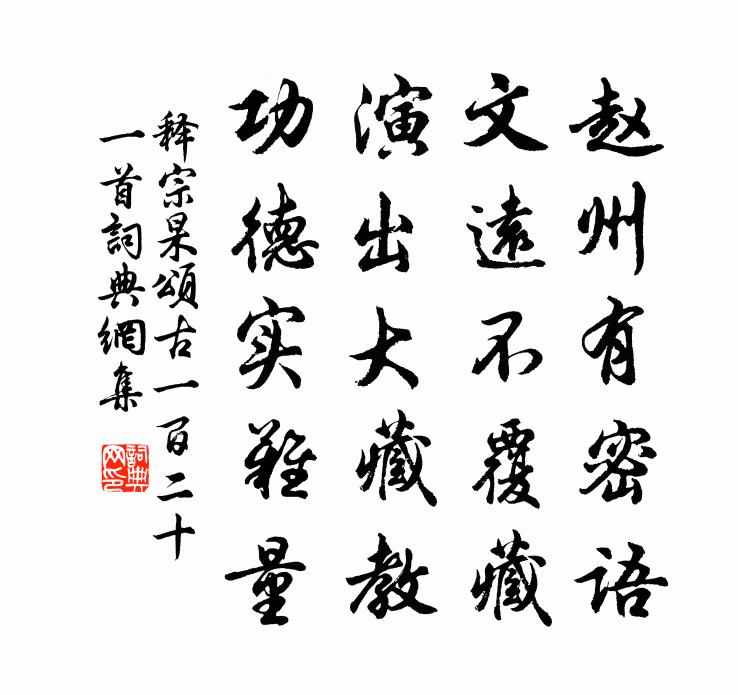 赵州有密语
文遠不覆藏
演出大藏教
功德实難量
释宗杲頌古一百二十
一首詞典網集
詞典
网印